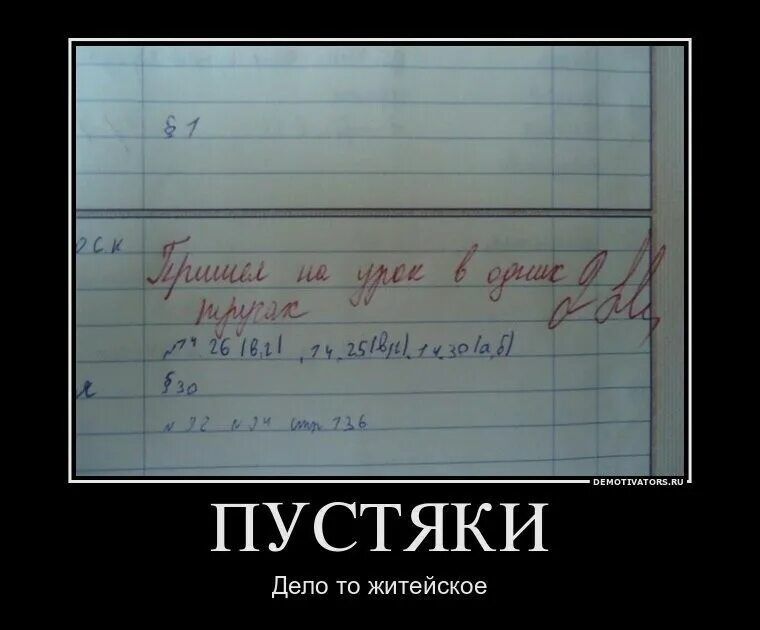 § 1
оск
Пришел на урок в одних
трусах
№14.26(в,г), 14.25(в,г), 14.30(а,б)
я
§30
№32 №34 стр 136
DEMOTIVATORS.RU
ПУСТЯКИ
Дело то житейское